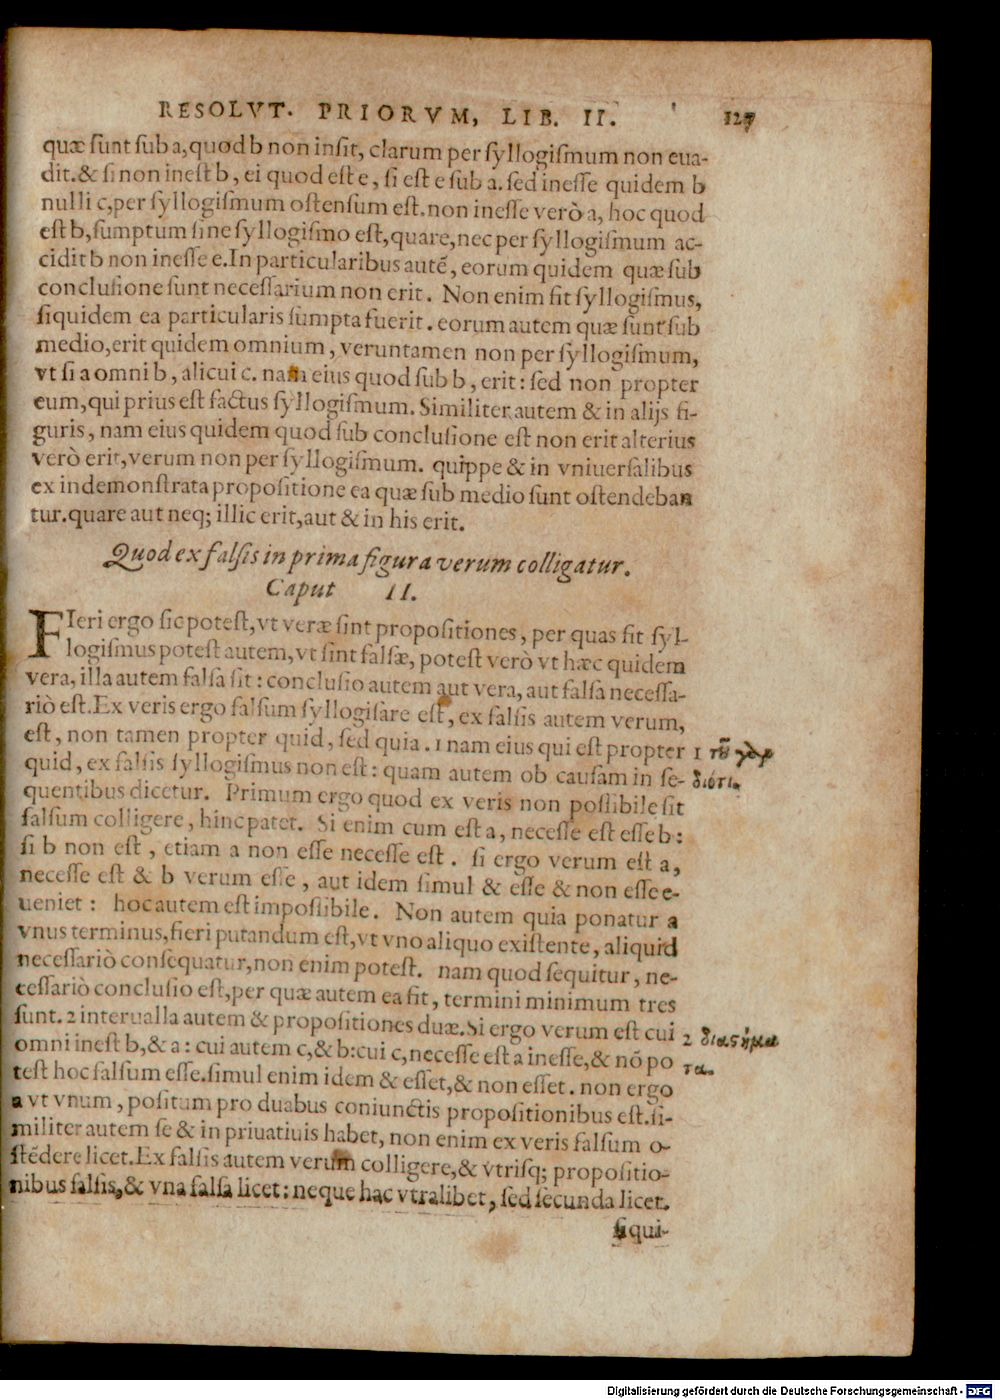 RESOLVT. PRIORVM, LIB. II. 127
quæ ſunt ſub a, quod b non inſit, clarum per ſyllogiſmum non eua-
dit. & ſi non ineſt b, ei quod eſt e, ſi eſt e ſub a. ſed ineſſe quidem b
nulli c, per ſyllogiſmum oſtenſum eſt. non ineſſe verò a, hoc quod
eſt b, ſumptum ſine ſyllogiſmo eſt, quare, nec per ſyllogiſmum ac-
cidit b non ineſſe e. In particularibus autē, eorum quidem quæ ſub
concluſione ſunt neceſſarium non erit. Non enim fit ſyllogiſmus,
ſiquidem ea particularis ſumpta fuerit. eorum autem quæ ſunt ſub
medio, erit quidem omnium, veruntamen non per ſyllogiſmum,
vt ſi a omni b, alicui c. nam eius quod ſub b, erit: ſed non propter
eum, qui prius eſt factus ſyllogiſmum. Similiter autem & in alijs fi-
guris, nam eius quidem quod ſub concluſione eſt non erit alterius
verò erit, verum non per ſyllogiſmum. quippe & in vniuerſalibus
ex indemonſtrata propoſitione ea quæ ſub medio ſunt oſtendeban
tur. quare aut neq; illic erit, aut & in his erit.
Quod ex falſis in prima figura verum colligatur.
Caput II.
FIeri ergo ſic poteſt, vt veræ ſint propoſitiones, per quas fit ſyl-
logiſmus poteſt autem, vt ſint falſæ, poteſt verò vt hæc quidem
vera, illa autem falſa ſit: concluſio autem aut vera, aut falſa neceſſa-
riò eſt. Ex veris ergo falſum ſyllogiſare eſt, ex falſis autem verum,
eſt, non tamen propter quid, ſed quia. 1 nam eius qui eſt propter
1 τοῦ γὰρ
quid, ex falſis ſyllogiſmus non eſt: quam autem ob cauſam in ſe-
διότι.
quentibus dicetur. Primum ergo quod ex veris non poſſibile ſit
falſum colligere, hinc patet. Si enim cum eſt a, neceſſe eſt eſſe b:
ſi b non eſt, etiam a non eſſe neceſſe eſt. ſi ergo verum eſt a,
neceſſe eſt & b verum eſſe, aut idem ſimul & eſſe & non eſſe e-
ueniet: hoc autem eſt impoſſibile. Non autem quia ponatur a
vnus terminus, fieri putandum eſt, vt vno aliquo exiſtente, aliquid
neceſſariò conſequatur, non enim poteſt. nam quod ſequitur, ne-
ceſſariò concluſio eſt, per quæ autem ea fit, termini minimum tres
ſunt. 2 interualla autem & propoſitiones duæ. Si ergo verum eſt cui
2 διαστήμα
omni ineſt b, & a: cui autem c, & b: cui c, neceſſe eſt a ineſſe, & nō po
τα.
teſt hoc falſum eſſe. ſimul enim idem & eſſet, & non eſſet. non ergo
a vt vnum, poſitum pro duabus coniunctis propoſitionibus eſt. ſi-
militer autem ſe & in priuatiuis habet, non enim ex veris falſum o-
ſtēdere licet. Ex falſis autem verum colligere, & vtriſq; propoſitio-
nibus falſis, & vna falſa licet: neque hac vtralibet, ſed ſecunda licet.
ſi qui-
Digitalisierung gefördert durch die Deutsche Forschungsgemeinschaft - DFG